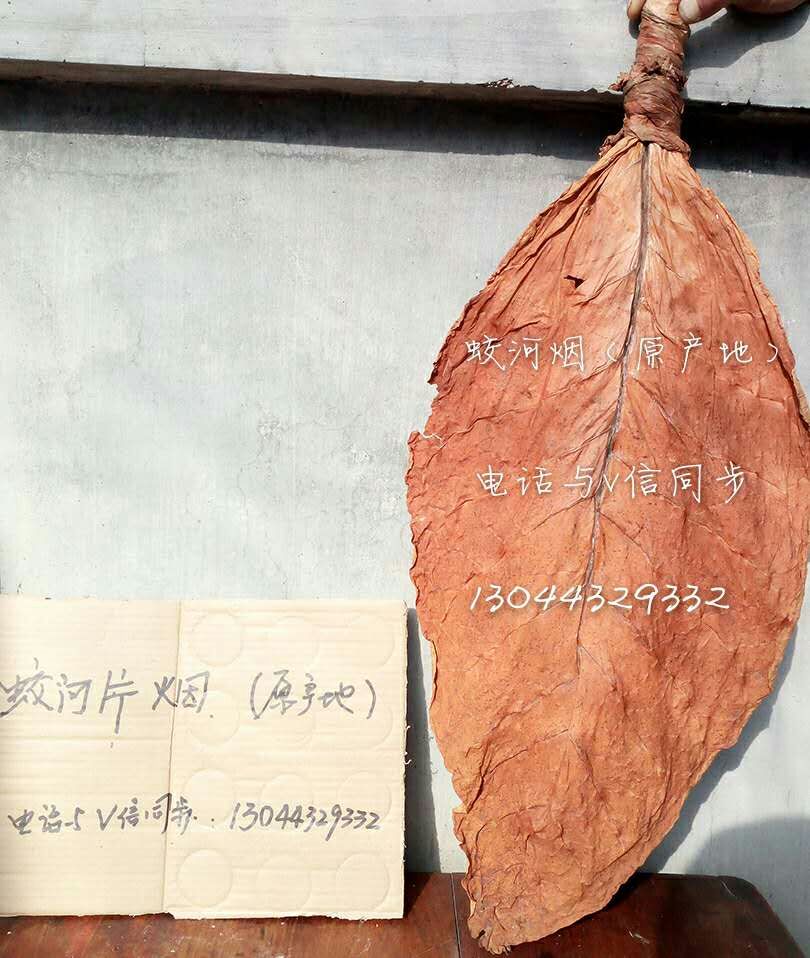 蛟河烟（原产地）
电话与V信同步
13044329332
蛟河片烟（原产地）
电话与V信同步.13044329332